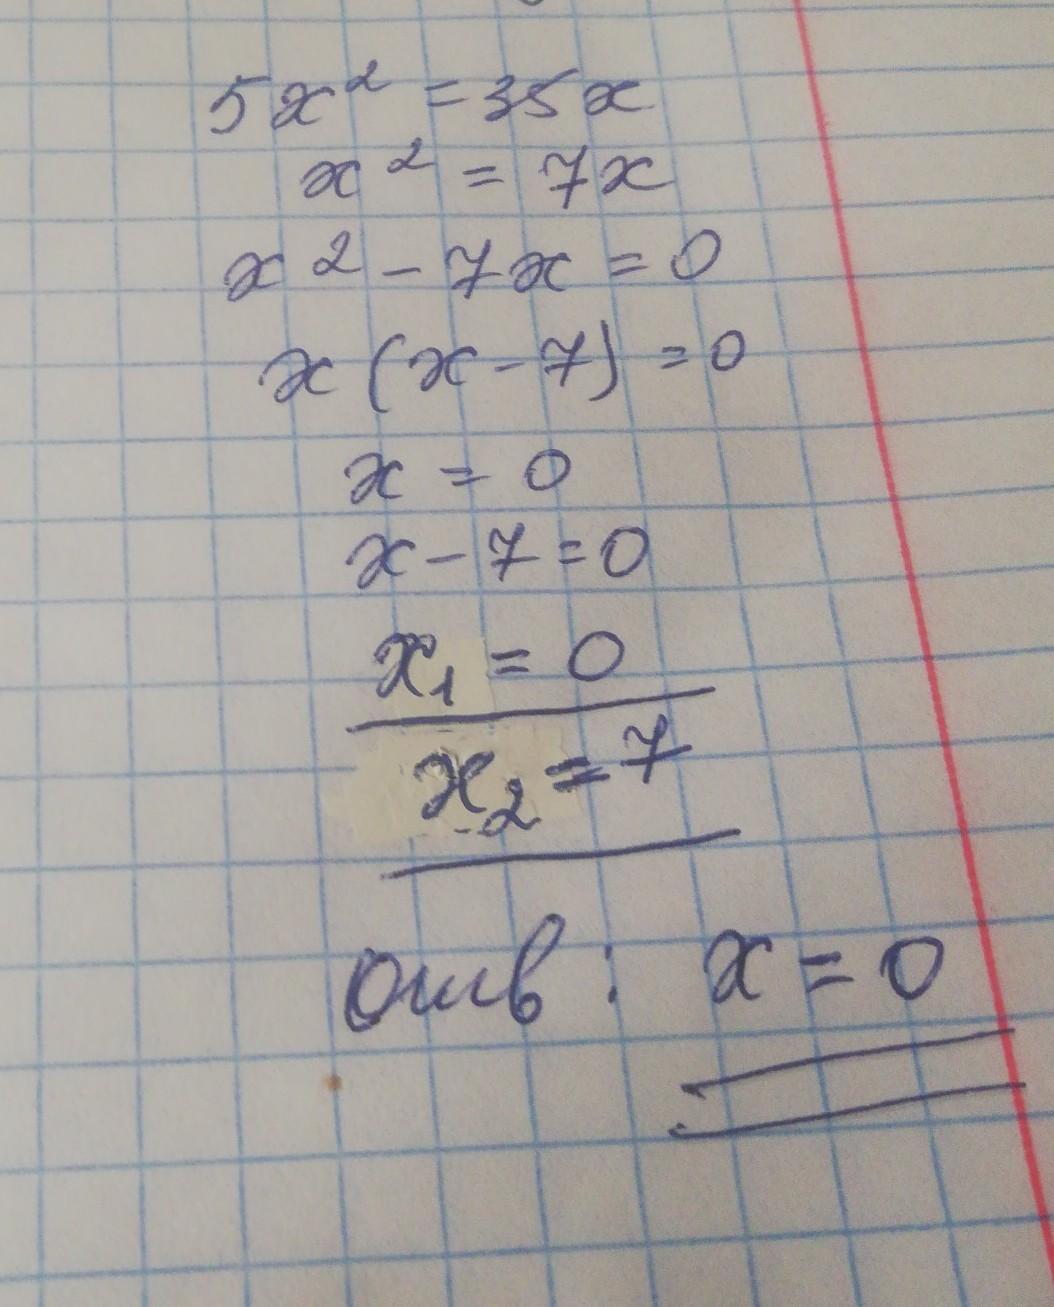 5x² = 35x
x² = 7x
x² - 7x = 0
x (x - 7) = 0
x = 0
x - 7 = 0
x₁ = 0
x₂ = 7
Отв: x = 0